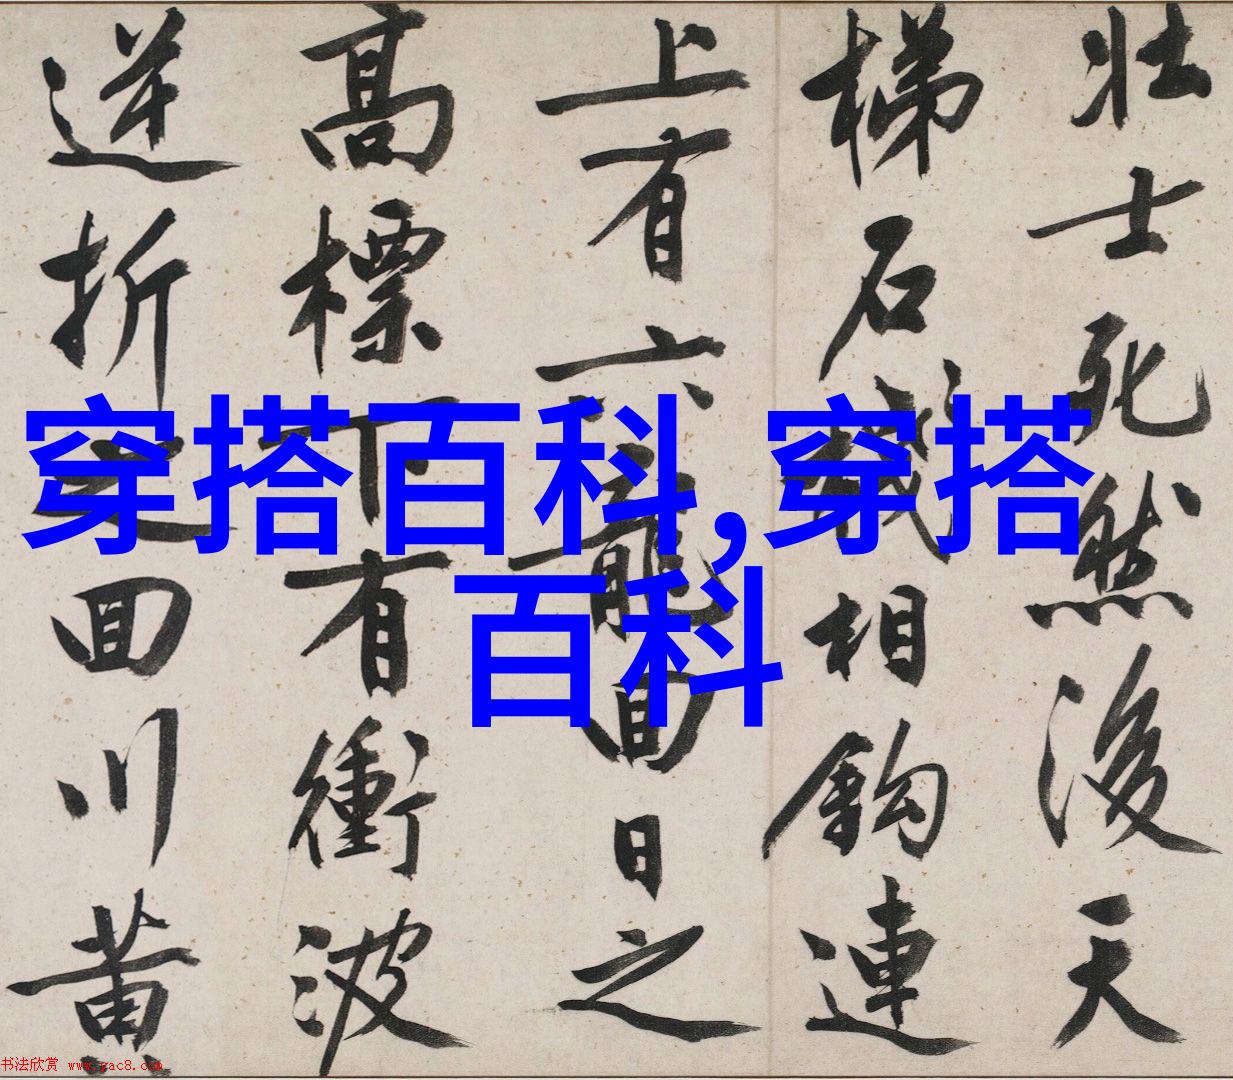 壯士死然後天
梯石棧相鈎連
上有六龍回日之
高標下有衝波
逆折之回川黃
穿搭百科,穿搭
百科
书法欣赏 www.yac8.com